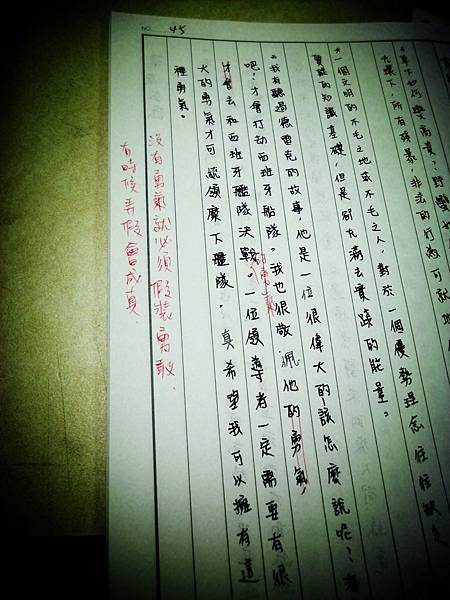 NO. 45
所有殘暴、非法的行為可說地
*一個文明的不毛之地或不毛之人，對於一個優勢是怠往往缺乏
實踐的知識基礎，但是別 滿去實踐的能量。
*我有聽過德雷克的故事，他是一位很偉大的—該怎麼說呢？者
吧！才會打劫西班牙船隊。我也很敬佩他的勇氣，
才會去和西班牙艦隊決戰。一位領導者一定需要有很
大的勇氣才可 領麾下艦隊。真希望我可以擁有這
種勇氣。
沒有勇氣就必須假裝勇敢.
有時候弄假會成真.